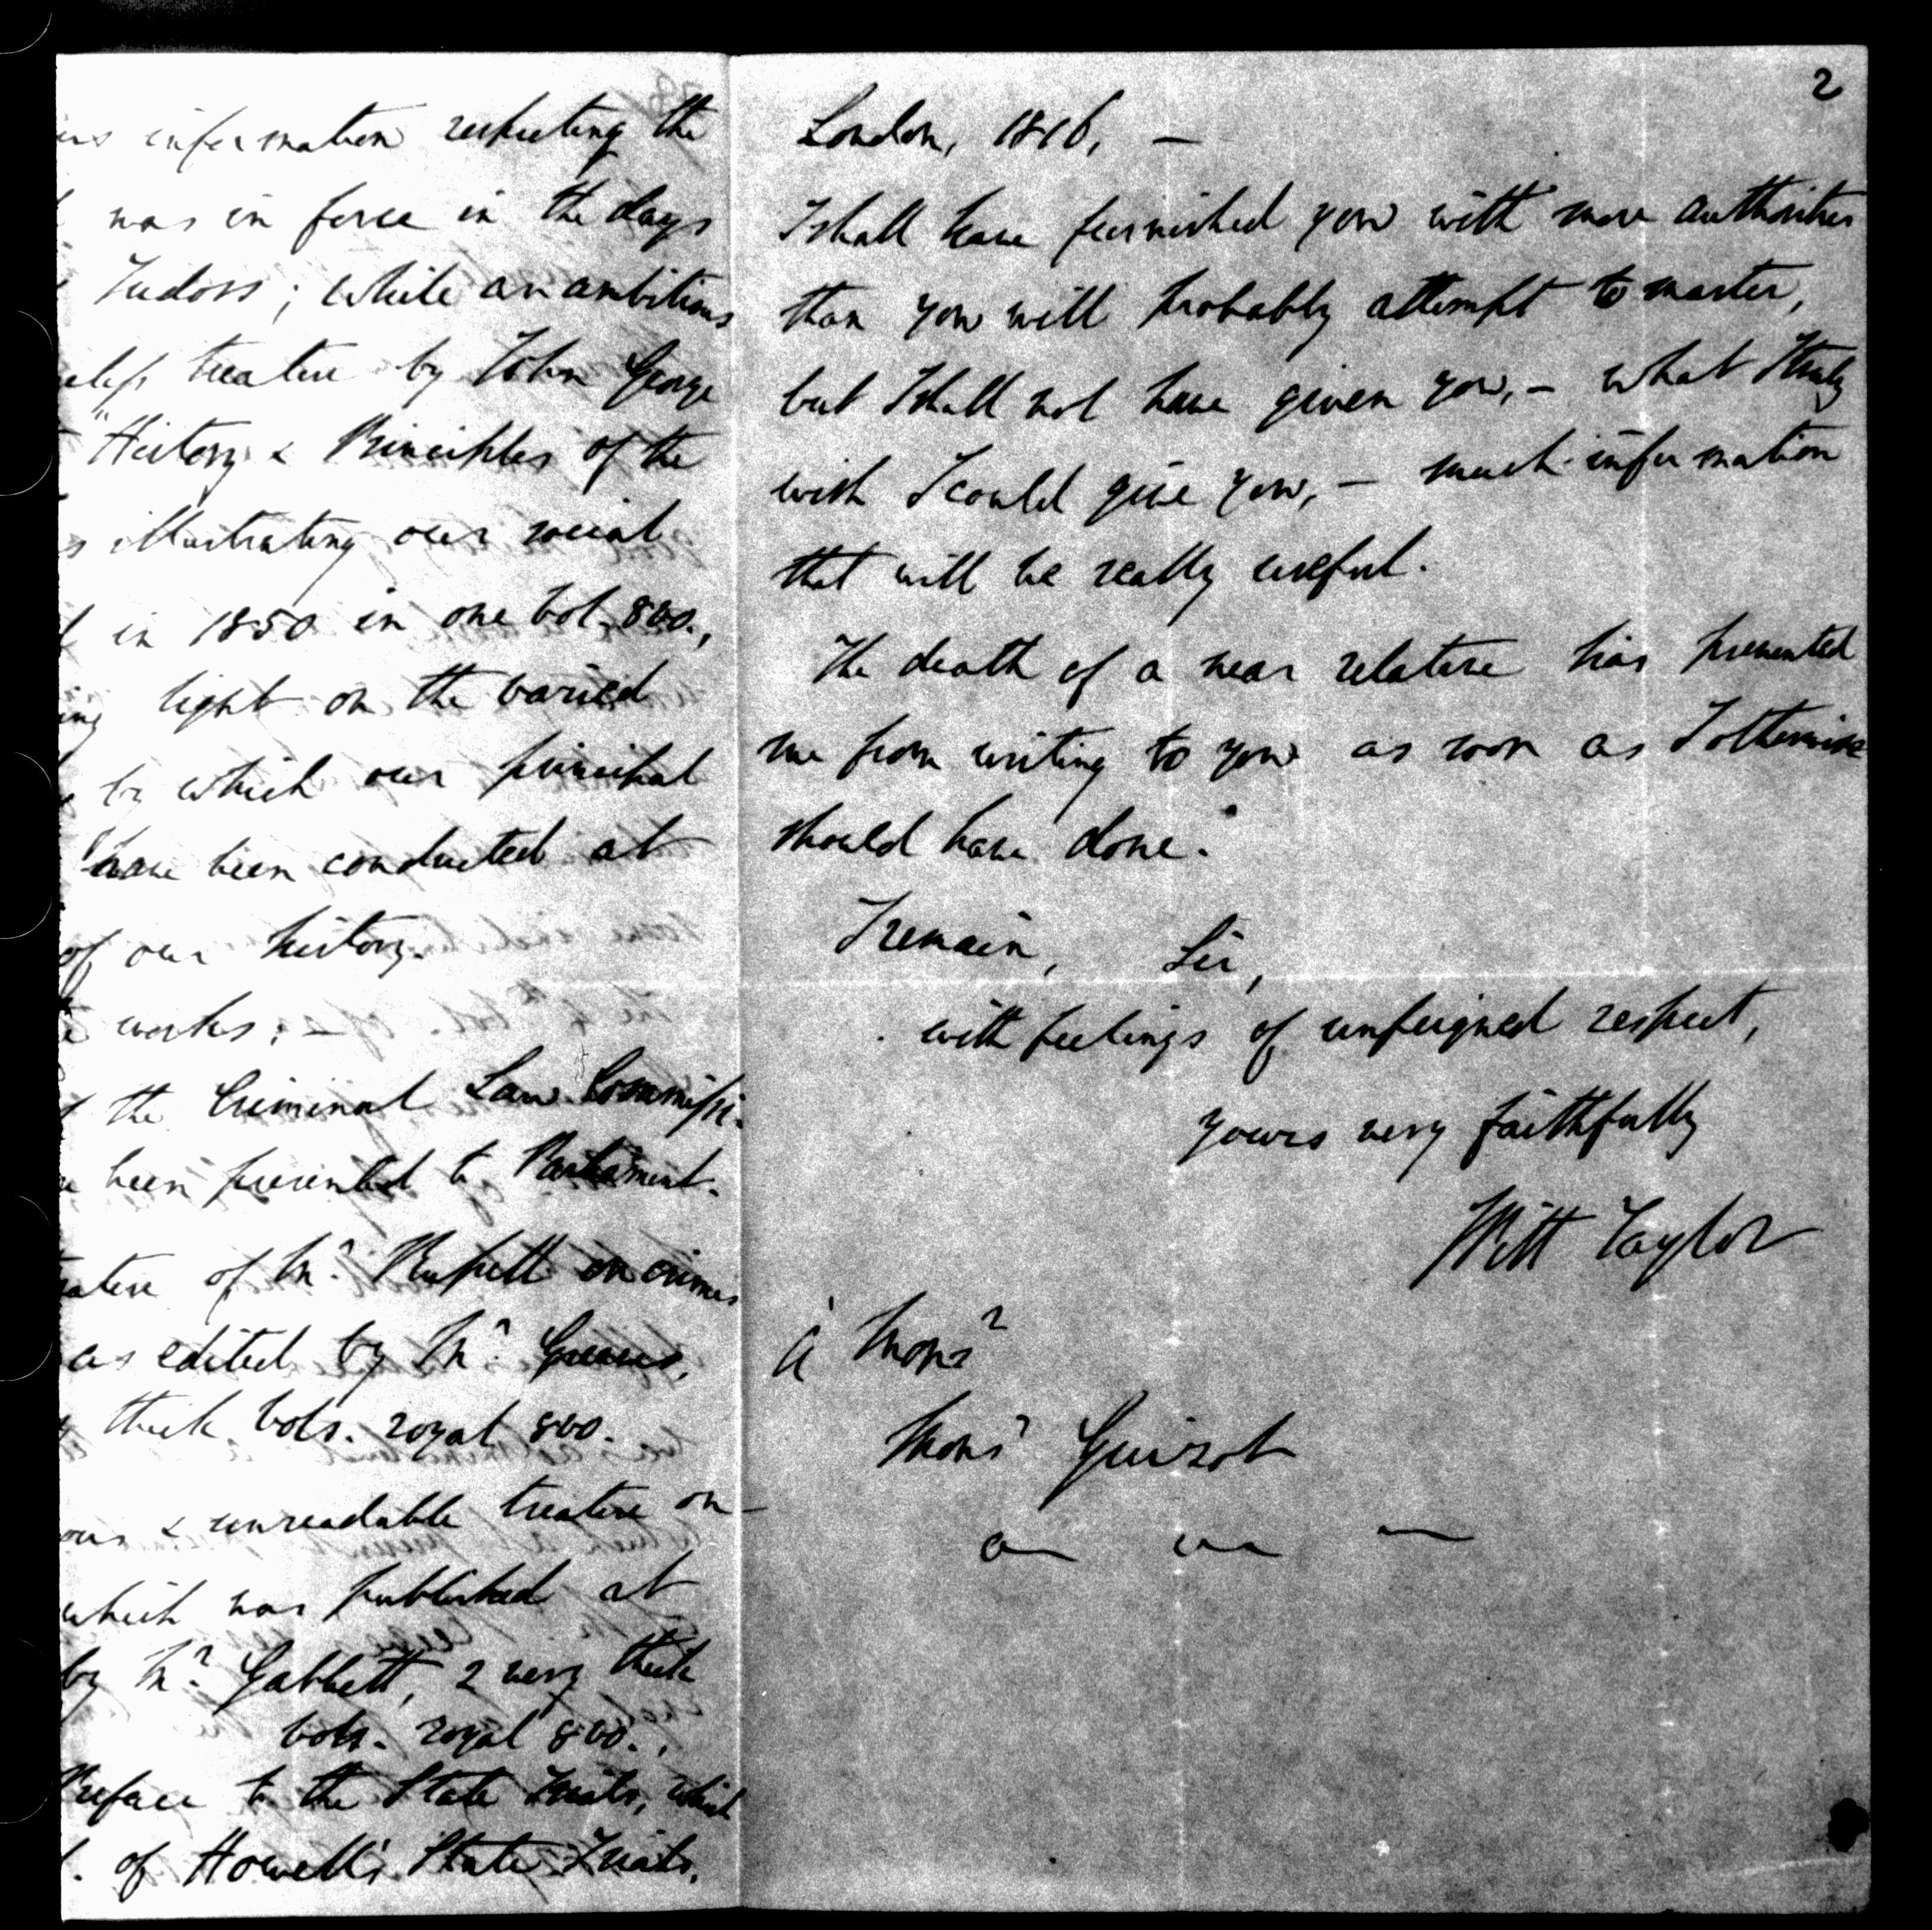 information respecting the
was in force in the days
Tudors; while an ambitious
treatise by John George
"History & Principles of the
illustrating our social
in 1850 in one vol. 8vo.,
light on the varied
by which our principal
have been conducted at
of our history.
works: –
the Criminal Law Commissi-
been presented to Parliament.
of Mr. Russell on crimes
as edited by Mr. Greaves,
thick vols. royal 8vo.
& unreadable treatise on
which was published at
by Mr. Gabbett, 2 very thick
vols. royal 8vo.,
Preface to the State Trials, which
of Howell's State Trials,
2
London, 1816, –
I shall have furnished you with more authorities
than you will probably attempt to master,
but I shall not have given you, – what I truly
wish I could give you, – much information
that will be really useful.
The death of a near relative has prevented
me from writing to you as soon as I otherwise
should have done.
I remain, Sir,
with feelings of unfeigned respect,
yours very faithfully
Pitt Taylor
à Monsr
Monsr Guizot